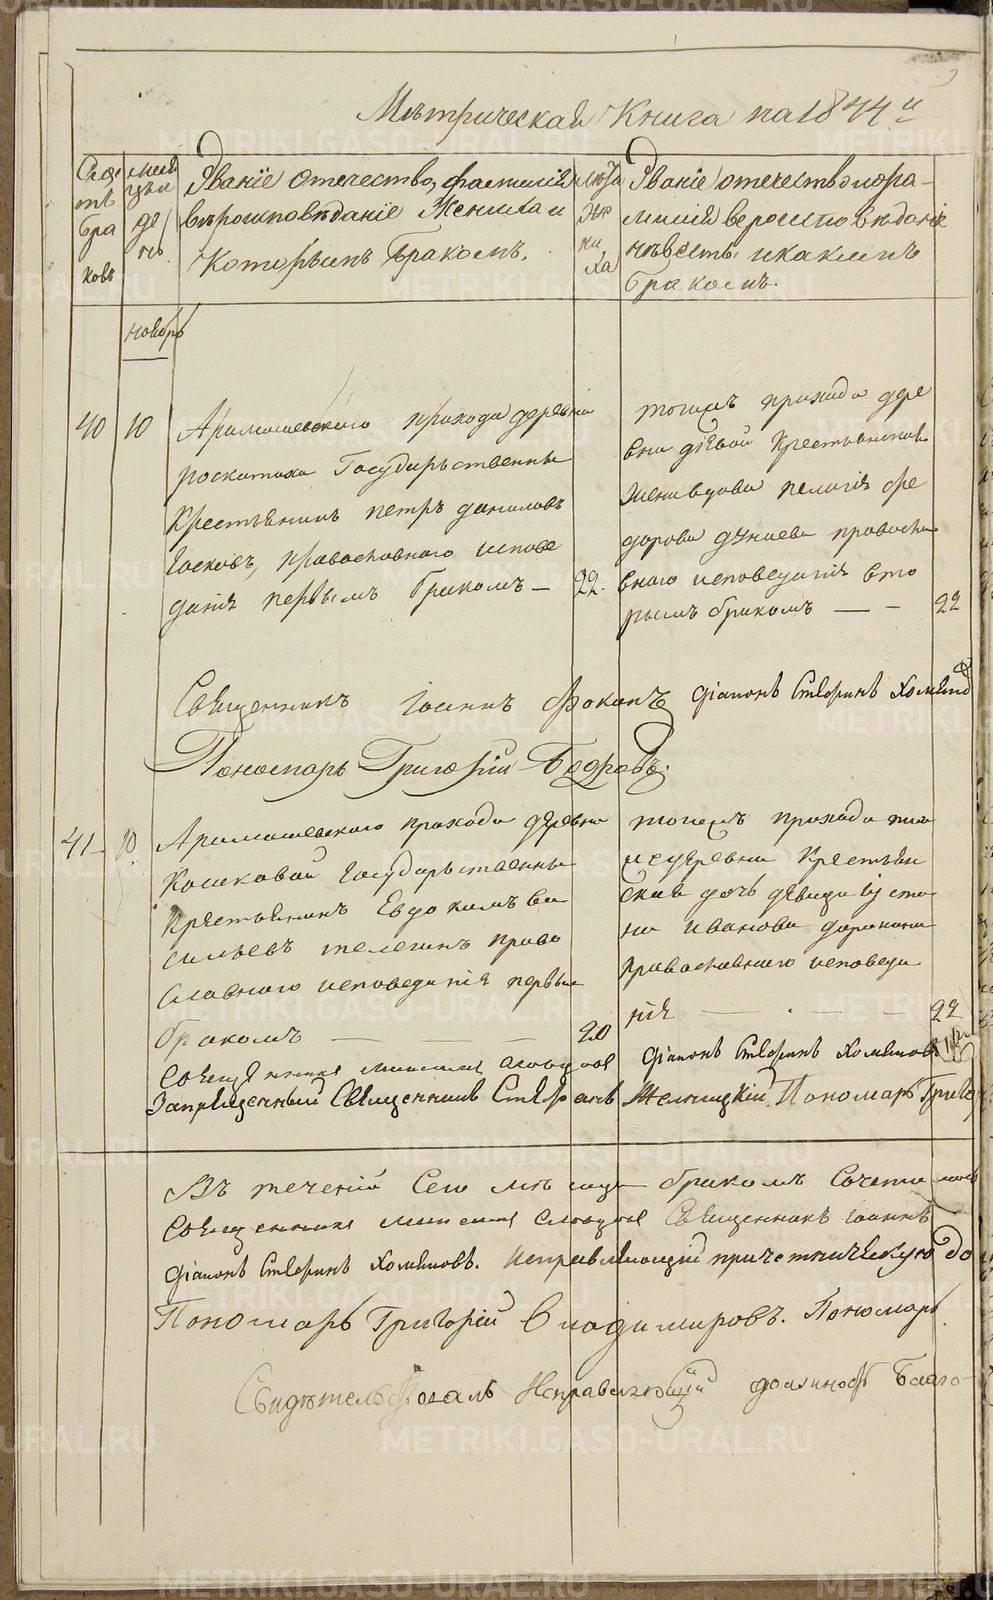 Мѣтрическая Книга на 1844й
Счетъ браковъ
Мѣсяцъ и день
Званіе отечество, фамилія
вѣроисповѣданіе Жениха и
Которымъ Бракомъ.
Лѣта Жениха
Званіе отечество и фа-
милія вероисповѣданіе
невѣсты и какимъ
Бракомъ.
ноябрь
40 10 Арамашевского прихода деревни
роскатихи Государственны
крестьянинъ петръ даниловъ
православного испове
данія первымъ бракомъ — 22.
тогожъ прихода дере
вни дѣвой крестьянская
жена вдова пелагія фе
дорова дунаева правосла
вного исповеданія вто
рымъ бракомъ — — 22
Священникъ Іоаннъ Фокинъ Діаконъ Стефанъ Хомяковъ
Пономарь Григорій Бодровъ.
41 10. Арамашевского прихода деревни
Кошковой государственны
крестьянинъ Евдокимъ ва
сильевъ телегинъ право
славного исповеданія первым
бракомъ — — 20
тогожъ прихода тои
же деревни крестьян
ская дочь девица Іусти
на иванова
православного исповеда
нія — — — 22
Священникъ Діаконъ Стефанъ Хомяковъ
Запрещенный Священникъ Стефанъ Желницкій Пономарь Григо
Въ теченіи Сего мѣсяца бракомъ Сочета
Священникъ Священникъ Іоаннъ
Діаконъ Стефанъ Хомяковъ. Исправляющій причетническую до
Пономарь Григорій Владимировъ. Пономарь
Свидѣтельствовалъ Исправляющій должность Благо-
METRIKI.GASO-URAL.RU